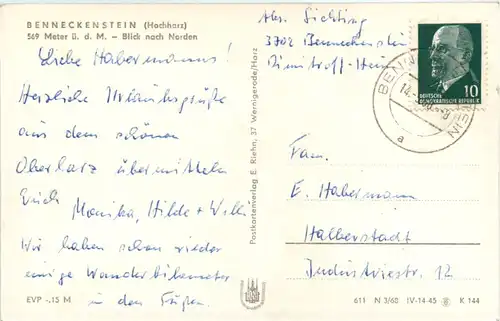 BENNECKENSTEIN (Hochharz)
569 Meter ü. d. M. – Blick nach Norden
Liebe Habermanns!
Herzliche Urlaubsgrüße
aus dem schönen
Oberharz übermitteln
Euch Monika, Hilde + Willi
Wir haben schon wieder
einige Wanderkilometer
in den Füßen.
EVP -.15 M
Postkartenverlag E. Riehn, 37 Wernigerode/Harz
Abs. Sichting
3702 Benneckenstein
Dimitroff-Heim
10
DEUTSCHE
DEMOKRATISCHE REPUBLIK
a
Fam.
E. Habermann
Halberstadt
Industriestr. 12
611 N 3/68 IV-14-45 K 144